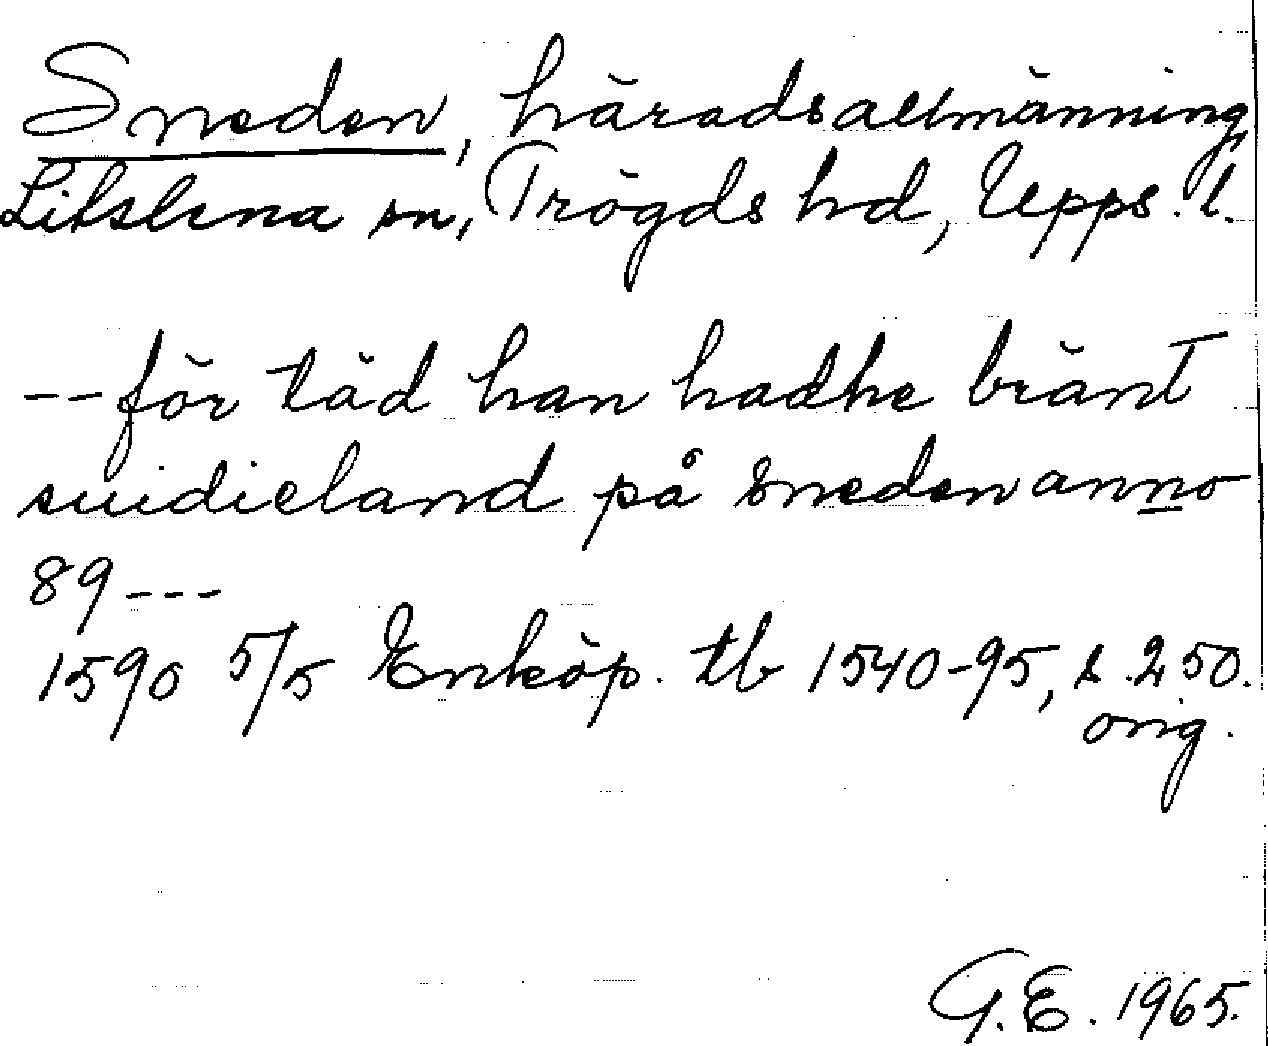 Sneden, häradsallmänning,
Litslena sn, Trögds hd, Upps. l.
-- för täd han hadhe bränt
suidieland på sneden anno
89 ---
1590 5/5 Enköp. tb 1540-95, s. 250.
orig.
G.E. 1965.